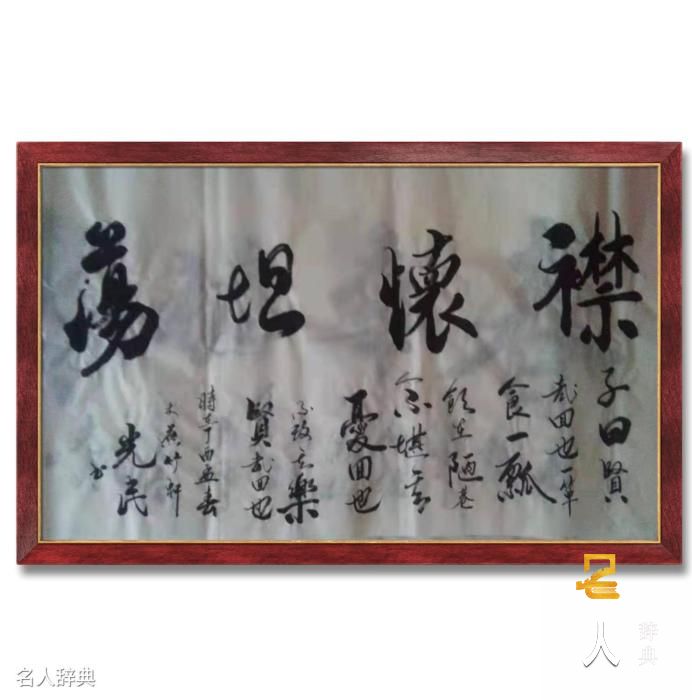 襟懷坦蕩
子曰賢
哉回也一簞
食一瓢
飲在陋巷
人不堪其
憂回也
不改其樂
賢哉回也
時丁酉孟春
竹軒
光民
書
名人辞典
名人辞典